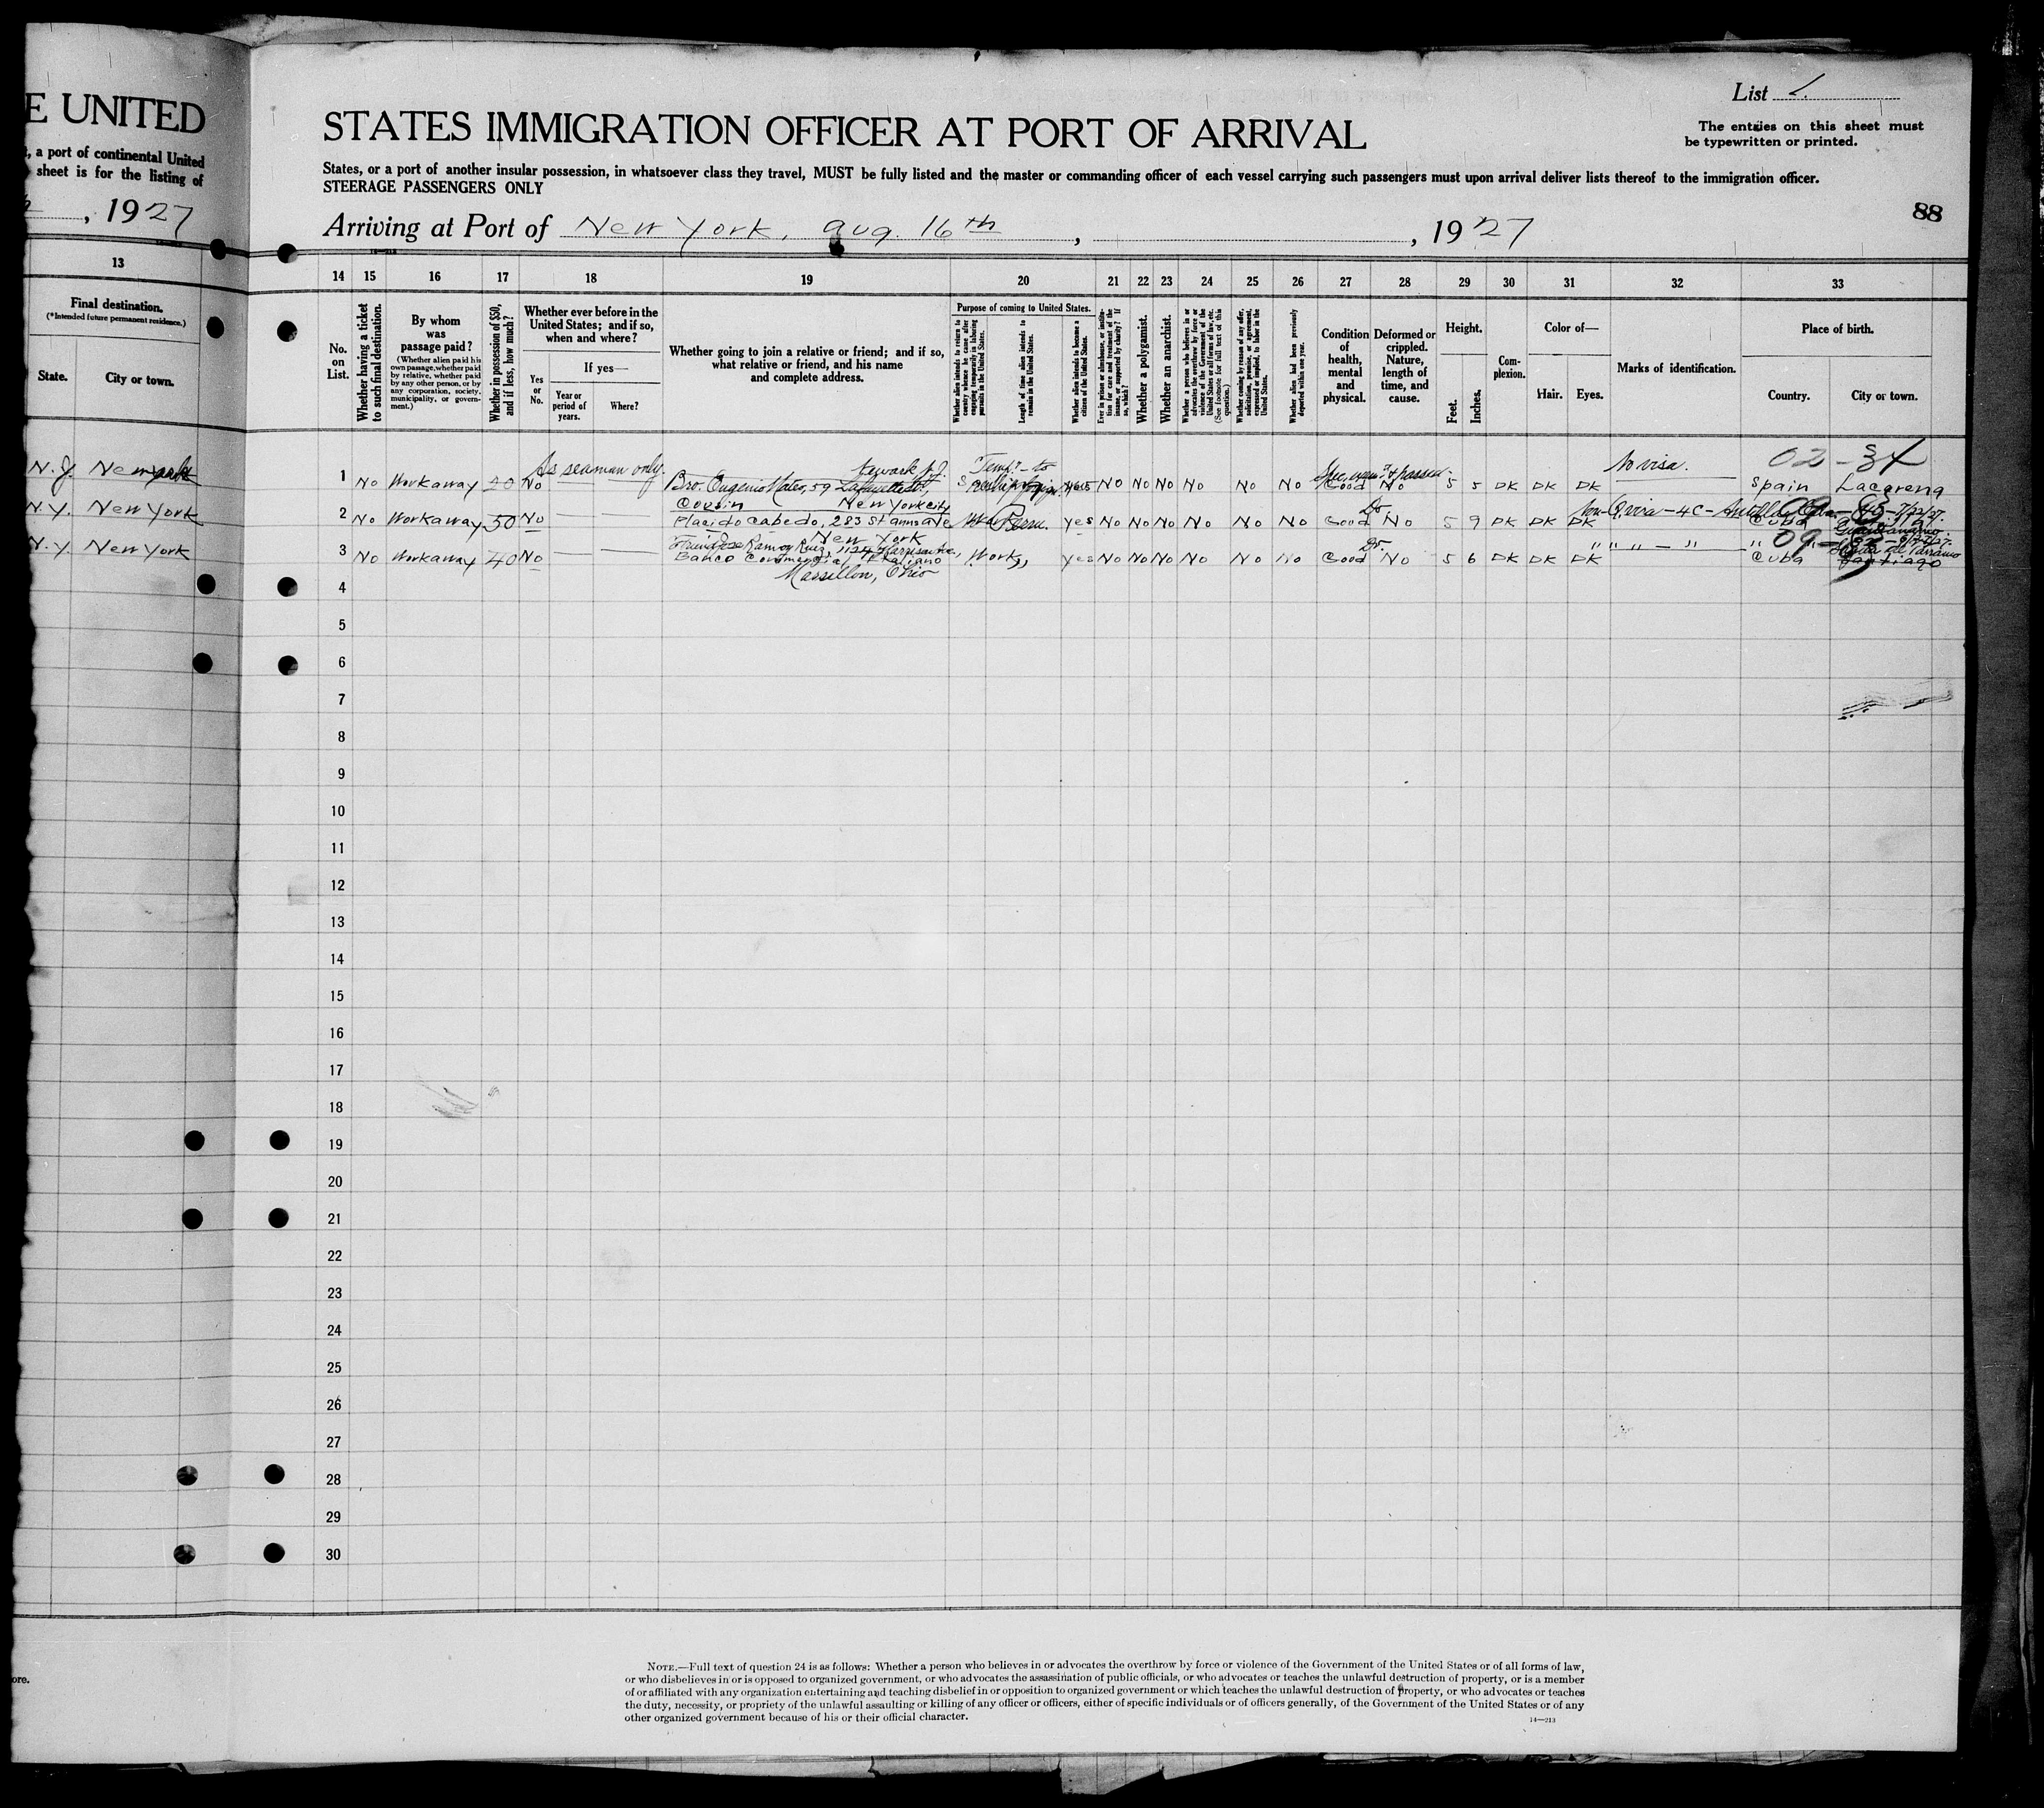 E UNITED
, a port of continental United
sheet is for the listing of
, 1927
13
Final destination.
(*Intended future permanent residence.)
State. City or town.
N.J. Newark
N.Y. New York
N.Y. New York
ore.
List
The entries on this sheet must
be typewritten or printed.
STATES IMMIGRATION OFFICER AT PORT OF ARRIVAL
States, or a port of another insular possession, in whatsoever class they travel, MUST be fully listed and the master or commanding officer of each vessel carrying such passengers must upon arrival deliver lists thereof to the immigration officer.
STEERAGE PASSENGERS ONLY
88
Arriving at Port of New York, Aug. 16th, , 1927
14 15 16 17 18 19 20 21 22 23 24 25 26 27 28 29 30 31 32 33
No. on List.
Whether having a ticket to such final destination.
By whom was passage paid?
(Whether alien paid his own passage, whether paid by relative, whether paid by any other person, or by any corporation, society, municipality, or government.)
Whether in possession of $50, and if less, how much?
Whether ever before in the United States; and if so, when and where?
Yes or No.
If yes—
Year or period of years.
Where?
Whether going to join a relative or friend; and if so, what relative or friend, and his name and complete address.
Purpose of coming to United States.
Whether alien intends to return to country whence he came after engaging temporarily in laboring pursuits in the United States.
Length of time alien intends to remain in the United States.
Whether alien intends to become a citizen of the United States.
Ever in prison or almshouse, or institution for care and treatment of the insane, or supported by charity? If so, which?
Whether a polygamist.
Whether an anarchist.
Whether a person who believes in or advocates the overthrow by force or violence of the Government of the United States or all forms of law, etc. (See footnote for full text of this question.)
Whether coming by reason of any offer, solicitation, promise, or agreement, expressed or implied, to labor in the United States.
Whether alien had been previously deported within one year.
Condition of health, mental and physical.
Deformed or crippled. Nature, length of time, and cause.
Height.
Feet. Inches.
Complexion.
Color of—
Hair. Eyes.
Marks of identification.
Place of birth.
Country. City or town.
As seaman only. Newark N.J. Temp. to No visa. 02-34
1 No Workaway 20 No Bro. Eugenio Mateo, 59 Lafayette St., yes No No No No No No Good No 5 5 DK DK DK Spain
Cousin New York city Do.
2 No Workaway 50 No Placido Cabedo, 283 St Anns Ave yes No No No No No No Good No 5 9 DK DK DK Cuba
New York Do.
3 No Workaway 40 No Work, yes No No No No No No Good No 5 6 DK DK DK Cuba Santiago
Massillon, Ohio
4
5
6
7
8
9
10
11
12
13
14
15
16
17
18
19
20
21
22
23
24
25
26
27
28
29
30
NOTE.—Full text of question 24 is as follows: Whether a person who believes in or advocates the overthrow by force or violence of the Government of the United States or of all forms of law,
or who disbelieves in or is opposed to organized government, or who advocates the assassination of public officials, or who advocates or teaches the unlawful destruction of property, or is a member
of or affiliated with any organization entertaining and teaching disbelief in or opposition to organized government or which teaches the unlawful destruction of property, or who advocates or teaches
the duty, necessity, or propriety of the unlawful assaulting or killing of any officer or officers, either of specific individuals or of officers generally, of the Government of the United States or of any
other organized government because of his or their official character.
14—213